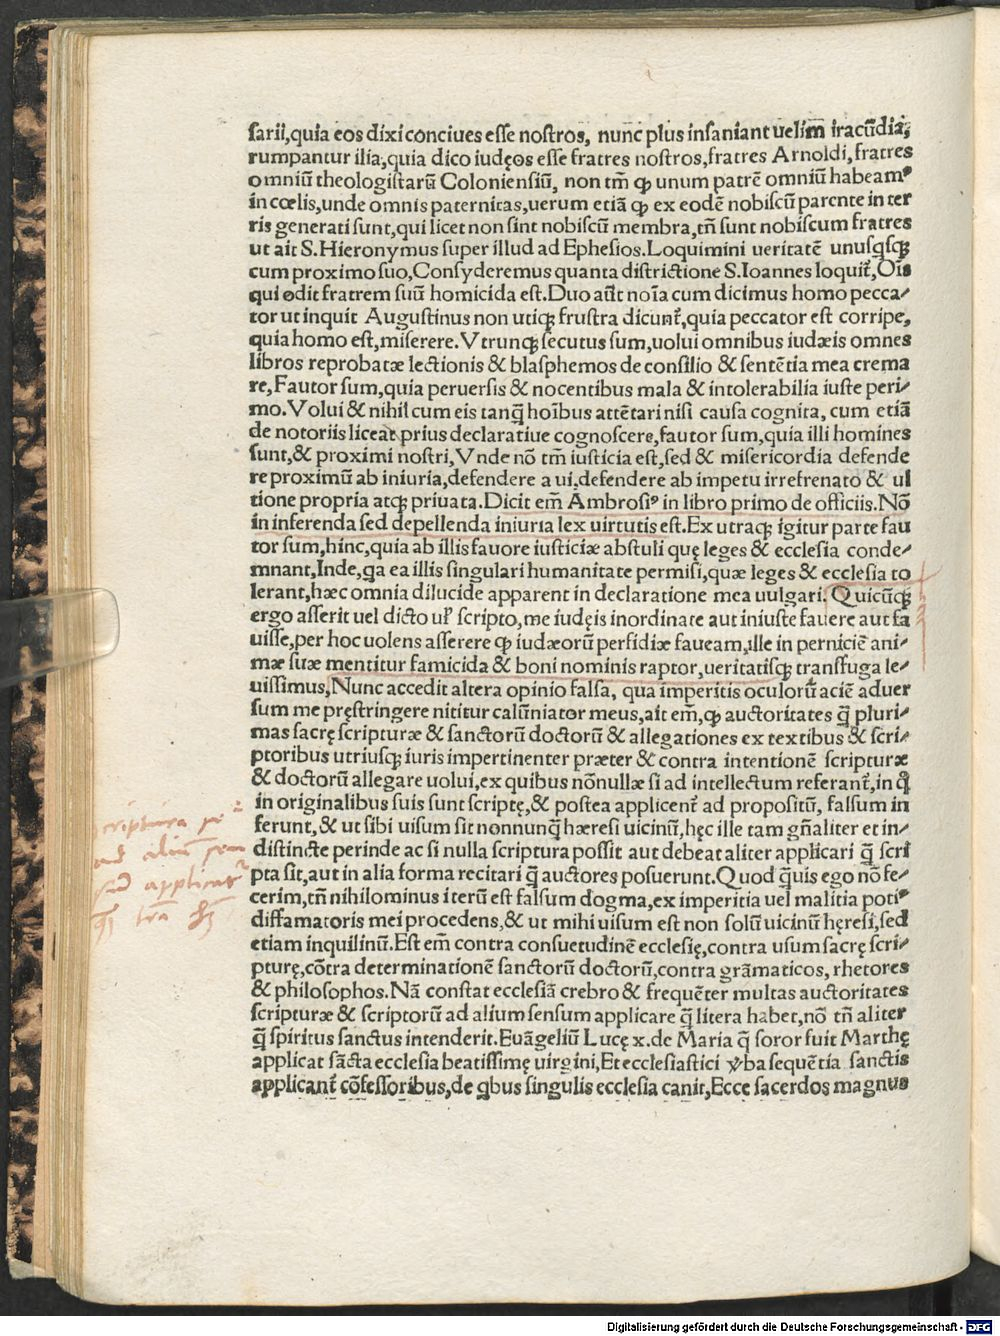 sarii,quia eos dixi conciues esse nostros, nunc plus insaniant uelim̄ iracūdia,
rumpantur ilia,quia dico iudęos esse fratres nostros,fratres Arnoldi,fratres
omniū theologistarū Coloniensiū, non tm̄ ꝙ unum patrē omniū habeamꝰ
in cœlis,unde omnis paternitas,uerum etiā ꝙ ex eodē nobiscū parente in ter
ris generati sunt,qui licet non sint nobiscū membra,tn̄ sunt nobiscum fratres
ut ait S.Hieronymus super illud ad Ephesios.Loquimini ueritatē unusqͥsqꝫ
cum proximo suo,Consyderemus quanta districtione S.Ioannes loquit᷑,Oīs
qui odit fratrem suū homicida est.Duo aūt noīa cum dicimus homo pecca⸗
tor ut inquit Augustinus non utiqꝫ frustra dicunt᷑,quia peccator est corripe,
quia homo est,miserere.Vtrunqꝫ secutus sum,uolui omnibus iudæis omnes
libros reprobatæ lectionis & blasphemos de consilio & sentētia mea crema
re,Fautor sum,quia peruersis & nocentibus mala & intolerabilia iuste peri⸗
mo.Volui & nihil cum eis tanq̄ hoībus attētari nisi causa cognita, cum etiā
de notoriis liceat prius declaratiue cognoscere,fautor sum,quia illi homines
sunt,& proximi nostri,Vnde nō tm̄ iusticia est,sed & misericordia defende
re proximū ab iniuria,defendere a ui,defendere ab impetu irrefrenato & ul
tione propria atqꝫ priuata.Dicit em̄ Ambrosiꝰ in libro primo de officiis.Nō
in inferenda sed depellenda iniuria lex uirtutis est.Ex utraqꝫ igitur parte fau
tor sum,hinc,quia ab illis fauore iusticiæ abstuli quę leges & ecclesia conde⸗
mnant,Inde,qa ea illis singulari humanitate permisi,quæ leges & ecclesia to
lerant,hæc omnia dilucide apparent in declaratione mea uulgari.Quicūqꝫ
ergo asserit uel dicto uł scripto,me iudęis inordinate aut iniuste fauere aut fa
uisse,per hoc uolens asserere ꝙ iudæorū perfidiæ faueam,ille in perniciē ani⸗
mæ suæ mentitur famicida & boni nominis raptor,ueritatisqꝫ transfuga le⸗
uissimus,Nunc accedit altera opinio falsa, qua imperitis oculorū aciē aduer
sum me pręstringere nititur calūniator meus,ait em̄,ꝙ auctoritates q̄ pluri⸗
mas sacrę scripturæ & sanctorū doctorū & allegationes ex textibus & scri⸗
ptoribus utriusqꝫ iuris impertinenter præter & contra intentionē scripturæ
& doctorū allegare uolui,ex quibus nōnullæ si ad intellectum referant᷑,in qͦ
in originalibus suis sunt scriptę,& postea applicent᷑ ad propositū, falsum in
ferunt,& ut sibi uisum sit nonnunq̄ hæresi uicinū,hęc ille tam gn̄aliter et in⸗
distincte perinde ac si nulla scriptura possit aut debeat aliter applicari q̄ scri
pta sit,aut in alia forma recitari q̄ auctores posuerunt.Quod q̄uis ego nō fe⸗
cerim,tn̄ nihilominus iterū est falsum dogma,ex imperitia uel malitia potiꝰ
diffamatoris mei procedens,& ut mihi uisum est non solū uicinū hęresi,sed
etiam inquilinū.Est em̄ contra consuetudinē ecclesię,contra usum sacrę scri⸗
pturę,cōtra determinationē sanctorū doctorū,contra grāmaticos, rhetores
& philosophos.Nā constat ecclesiā crebro & frequēter multas auctoritates
scripturæ & scriptorū ad alium sensum applicare q̄ litera habet,nō tn̄ aliter
q̄ spiritus sanctus intenderit.Euāgeliū Lucę x.de Maria q̄ soror fuit Marthę
applicat sācta ecclesia beatissimę uirgini,Et ecclesiastici ꝟba sequētia sanctis
applicant᷑ cōfessoribus,de qͥbus singulis ecclesia canit,Ecce sacerdos magnus
scriptura
ad aliū
applicat᷑
Digitalisierung gefördert durch die Deutsche Forschungsgemeinschaft - DFG